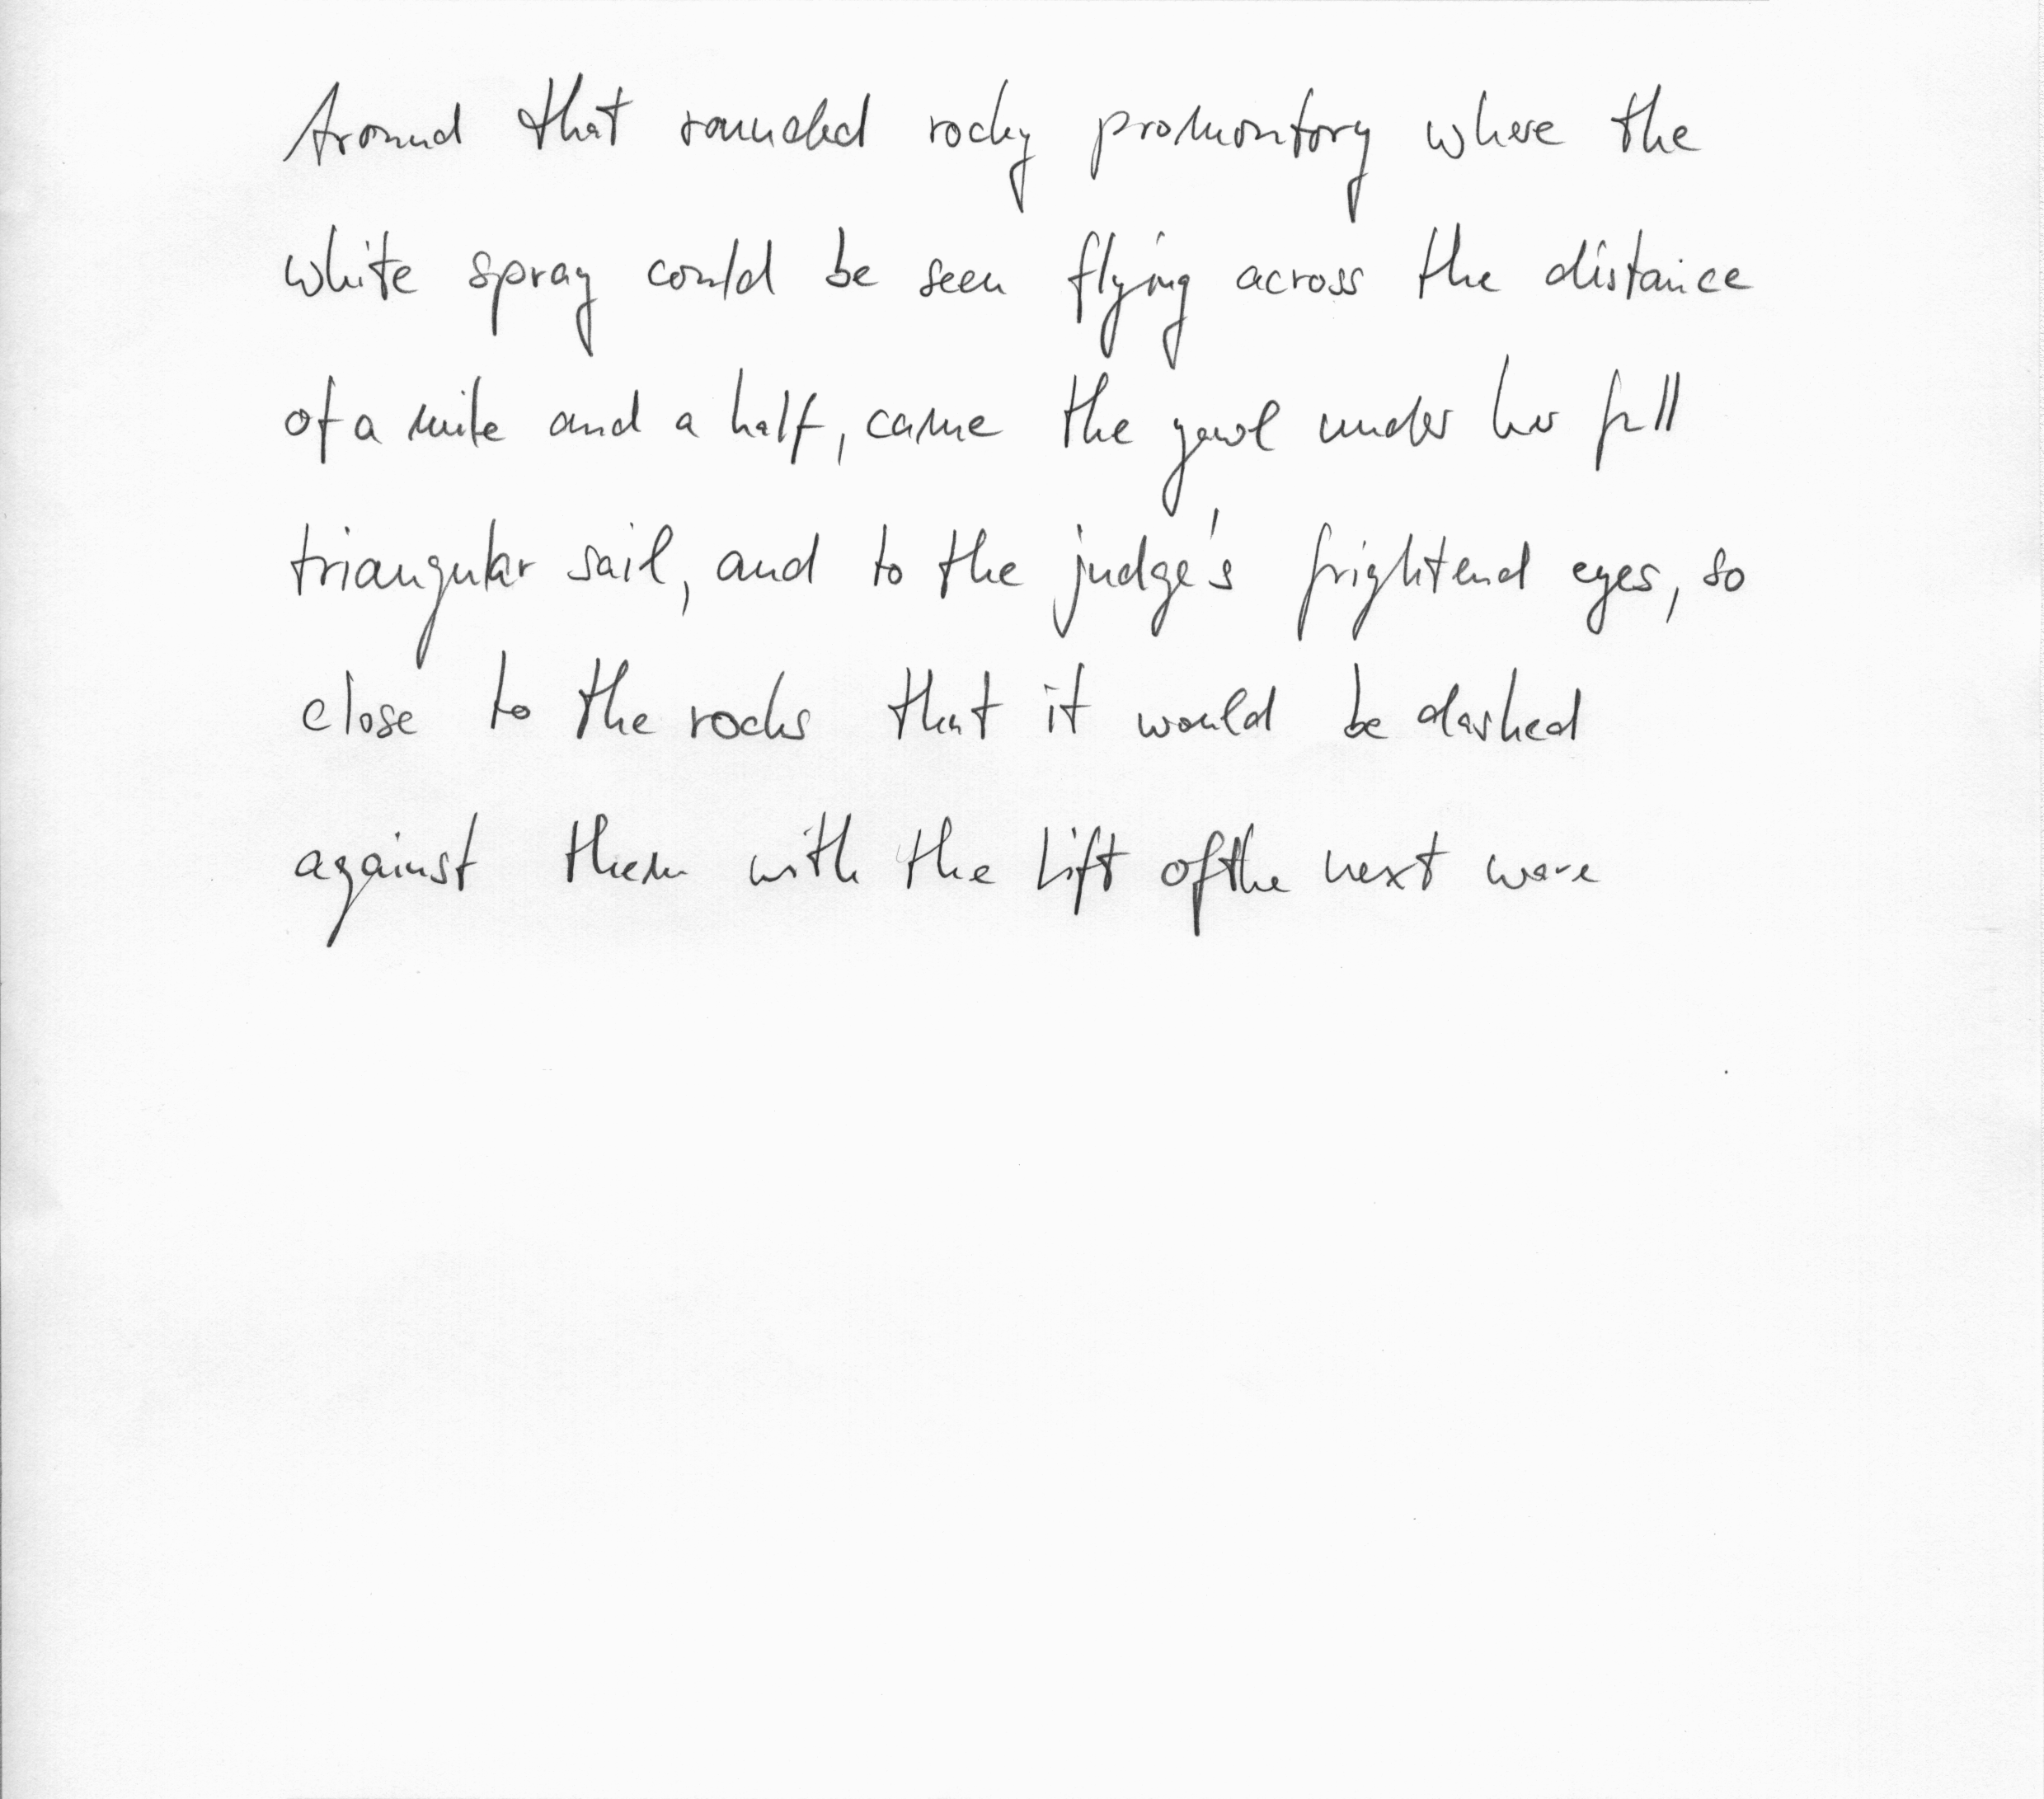 Around that rounded rocky promontory where the
white spray could be seen flying across the distance
of a mile and a half, came the yawl under her full
triangular sail, and to the judge's frightend eyes, so
close to the rocks that it would be dashed
against them with the lift of the next wave